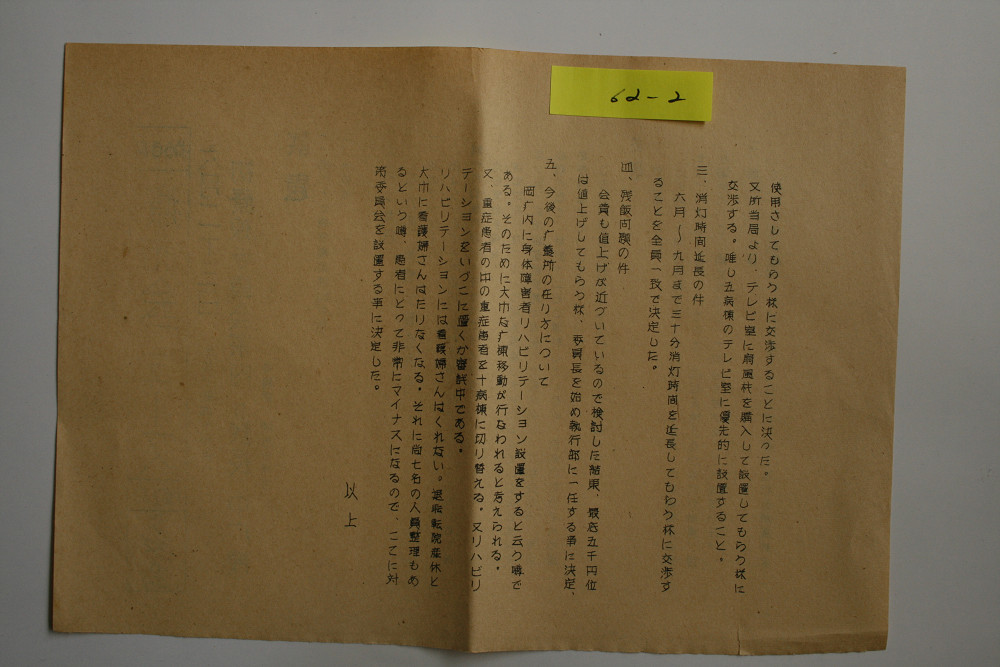 62-2
使用さしてもらう様に交渉することに決った。
又所当局より、テレビ室に扇風機を購入して設置してもらう様に
交渉する。唯し五病棟のテレビ室に優先的に設置すること。
三、消灯時間延長の件
六月〜九月まで三十分消灯時間を延長してもらう様に交渉す
ることを全員一致で決定した。
四、残飯問題の件
会費も値上げが近づいているので検討した結果、最低五千円位
は値上げしてもらう様、委員長を始め執行部に一任する事に決定。
五、今後の療養所の在り方について
岡療内に身体障害者リハビリテーション設置をすると云う噂で
ある。そのために大巾な病棟移動が行なわれると考えられる。
又、重症患者の中の重症患者を十病棟に切り替える。又リハビリ
テーションをいづこに置くか審議中である。
リハビリテーションには看護婦さんはくれない。退所転院産休と
大巾に看護婦さんはたりなくなる。それに尚七名の人員整理もあ
るという噂、患者にとって非常にマイナスになるので、ここに対
策委員会を設置する事に決定した。
以上